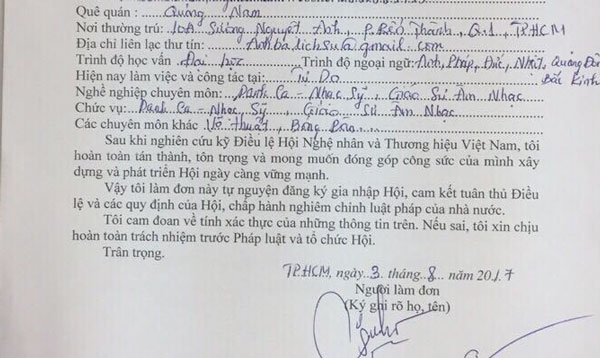 Quê quán : Quảng Nam
Nơi thường trú: 10A Sương Nguyệt Anh, P. Bến Thành, Q.1, TP.HCM
Địa chỉ liên lạc thư tín: Anhbatichsu@gmail.com
Trình độ học vấn Đại học Trình độ ngoại ngữ: Anh, Pháp, Đức, Nhật, Quảng Đông
Bắc Kinh
Hiện nay làm việc và công tác tại: Tự Do
Nghề nghiệp chuyên môn: Danh Ca - Nhạc Sỹ, Giáo Sư Âm Nhạc
Chức vụ: Danh Ca - Nhạc Sỹ, Giáo Sư Âm Nhạc
Các chuyên môn khác Võ thuật, Bóng Bàn
Sau khi nghiên cứu kỹ Điều lệ Hội Nghệ nhân và Thương hiệu Việt Nam, tôi
hoàn toàn tán thành, tôn trọng và mong muốn đóng góp công sức của mình xây
dựng và phát triển Hội ngày càng vững mạnh.
Vậy tôi làm đơn này tự nguyện đăng ký gia nhập Hội, cam kết tuân thủ Điều
lệ và các quy định của Hội, chấp hành nghiêm chỉnh luật pháp của nhà nước.
Tôi cam đoan về tính xác thực của những thông tin trên. Nếu sai, tôi xin chịu
hoàn toàn trách nhiệm trước Pháp luật và tổ chức Hội.
Trân trọng.
TP.HCM, ngày 3 tháng 8 năm 2017
Người làm đơn
(Ký ghi rõ họ, tên)